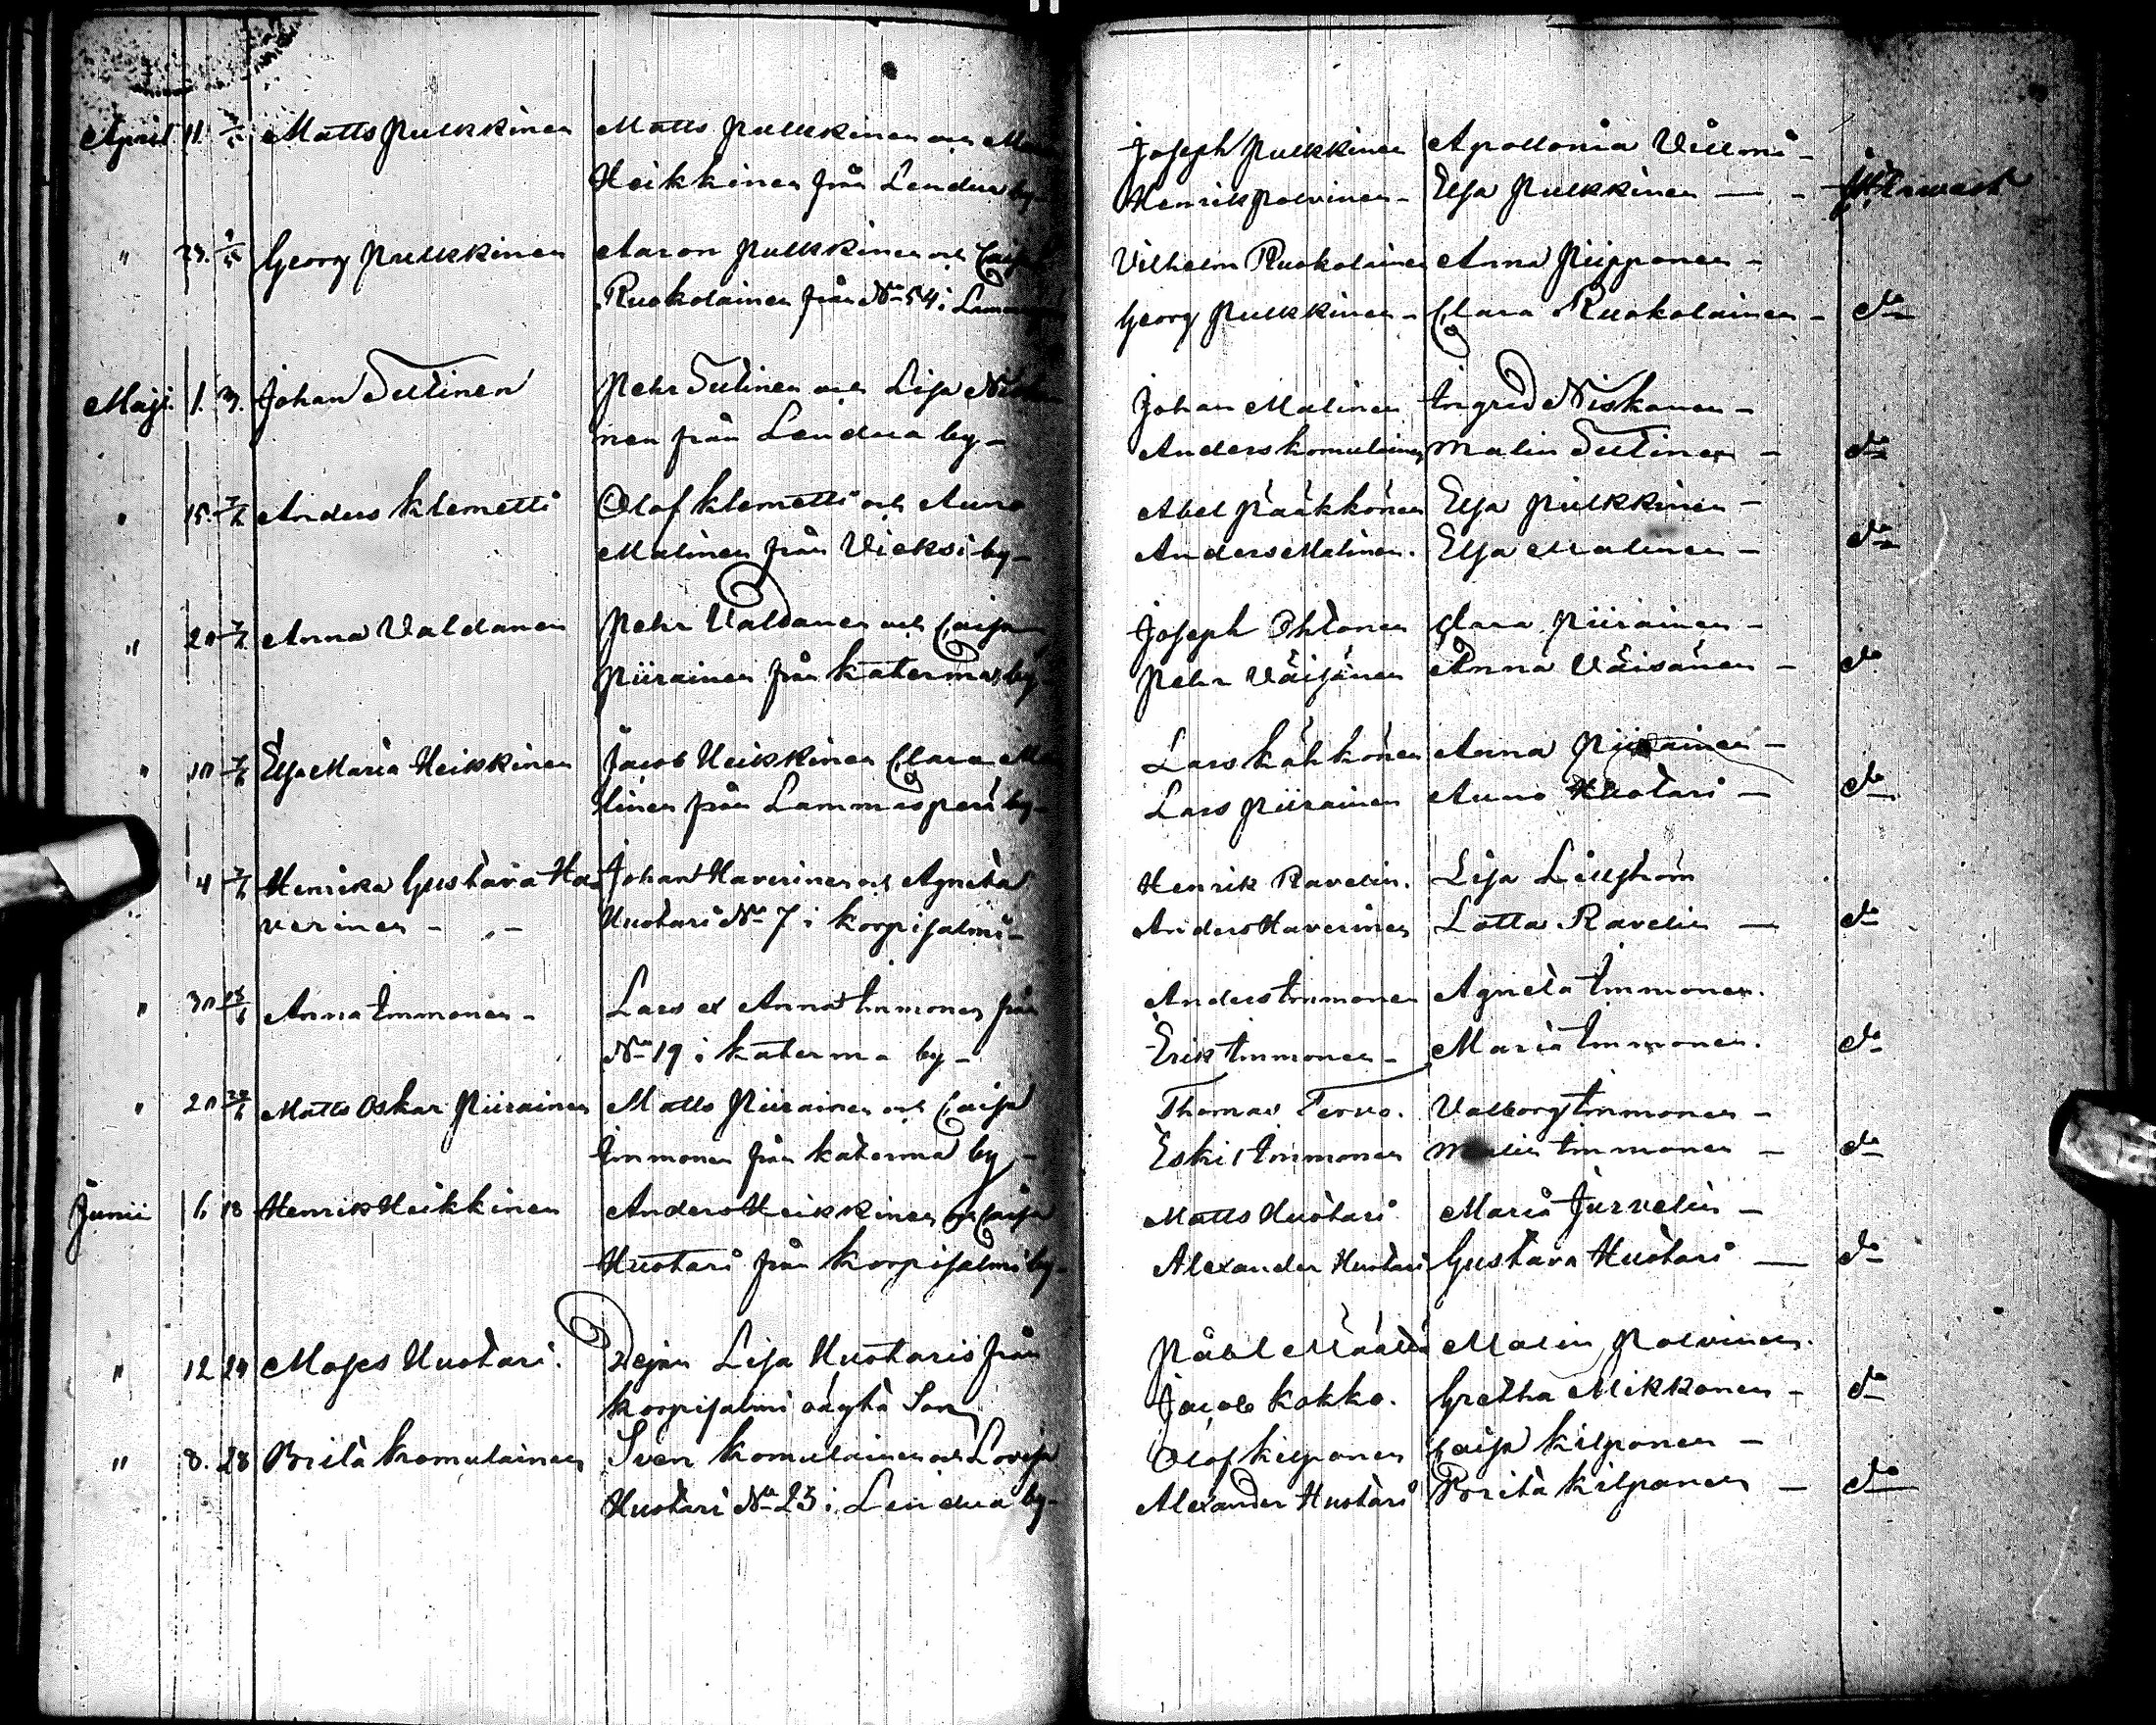 April 11. 7/5 Matts Pulkkinen Matts Pulkkinen och Joseph Pulkkinen Apollonia Villmi -
Heikkinen från Lendua by - Henrik Polvinen - Elsa Pulkkinen -
" 23. 7/5 Georg Pulkkinen Aaron Pulkkinen och Caisa Vilhelm Ruokolainen Anna Piipponen -
Ruokolainen från No 54 i Georg Pulkkinen - Clara Ruokolainen - do
Maji. 1. 3. Johan Tutinen Pehr Tutinen och Lisa Johan Malinen Ingrid Niskanen -
nen från Lendua by - Anders Komulainen Malin Tutinen - do
" 15. 7/6 Anders Klemetti Olof Klemetti och Anna Abel Pääkkönen Elsa Pulkkinen -
Malinen från Vieksi by - Anders Malinen. Elsa Malinen - do
" 20 7/6 Anna Valdanen Pehr Valdanen och Caisa Joseph Ohtonen Clara Piirainen -
Piirainen från Katerma by - Pehr Väisänen Anna Väisänen - do
" 10 7/6 Elsa Maria Heikkinen Jacob Heikkinen Clara Ma Lars Kähkönen Anna Piirainen -
linen från Lammasperä by - Lars Piirainen Anna Huotari - do
4 7/6 Henrika Gustava Ha- Johan Haverinen och Agneta Henrik Ravelin. Lisa Lillström
verinen - Huotari No 7 i Korpisalmi - Anders Haverinen Lotta Ravelin - do
" 30 18/6 Anna Immonen - Lars et Anna Immonen från Anders Immonen Agneta Immonen.
No 19 i Katerma by - Erik Immonen - Maria Immonen. do
" 20 Matts Oskar Piirainen Matts Piirainen och Caisa Thomas Tervo. Valborg Immonen -
Immonen från Katerma by - Eskil Immonen Malin Immonen - do
Junii 6. 18 Henrik Heikkinen Anders Heikkinen och Caisa Matts Huotari Maria Jurvelin -
Huotari från Korpisalmi by - Alexander Huotari Gustava Huotari - do
" 12 24 Moses Huotari. Pejan Lisa Huotaris från Påhl Määttä Malin Polvinen.
Korpisalmi oägta Son Jacob Kokko. Gretha Mikkonen - do
" 8. 28 Brita Komulainen Sven Komulainen och Lovisa Olof Kilponen Caisa Kilponen -
Huotari No 23 i Lendua by - Alexander Huotari Brita Kilponen - do